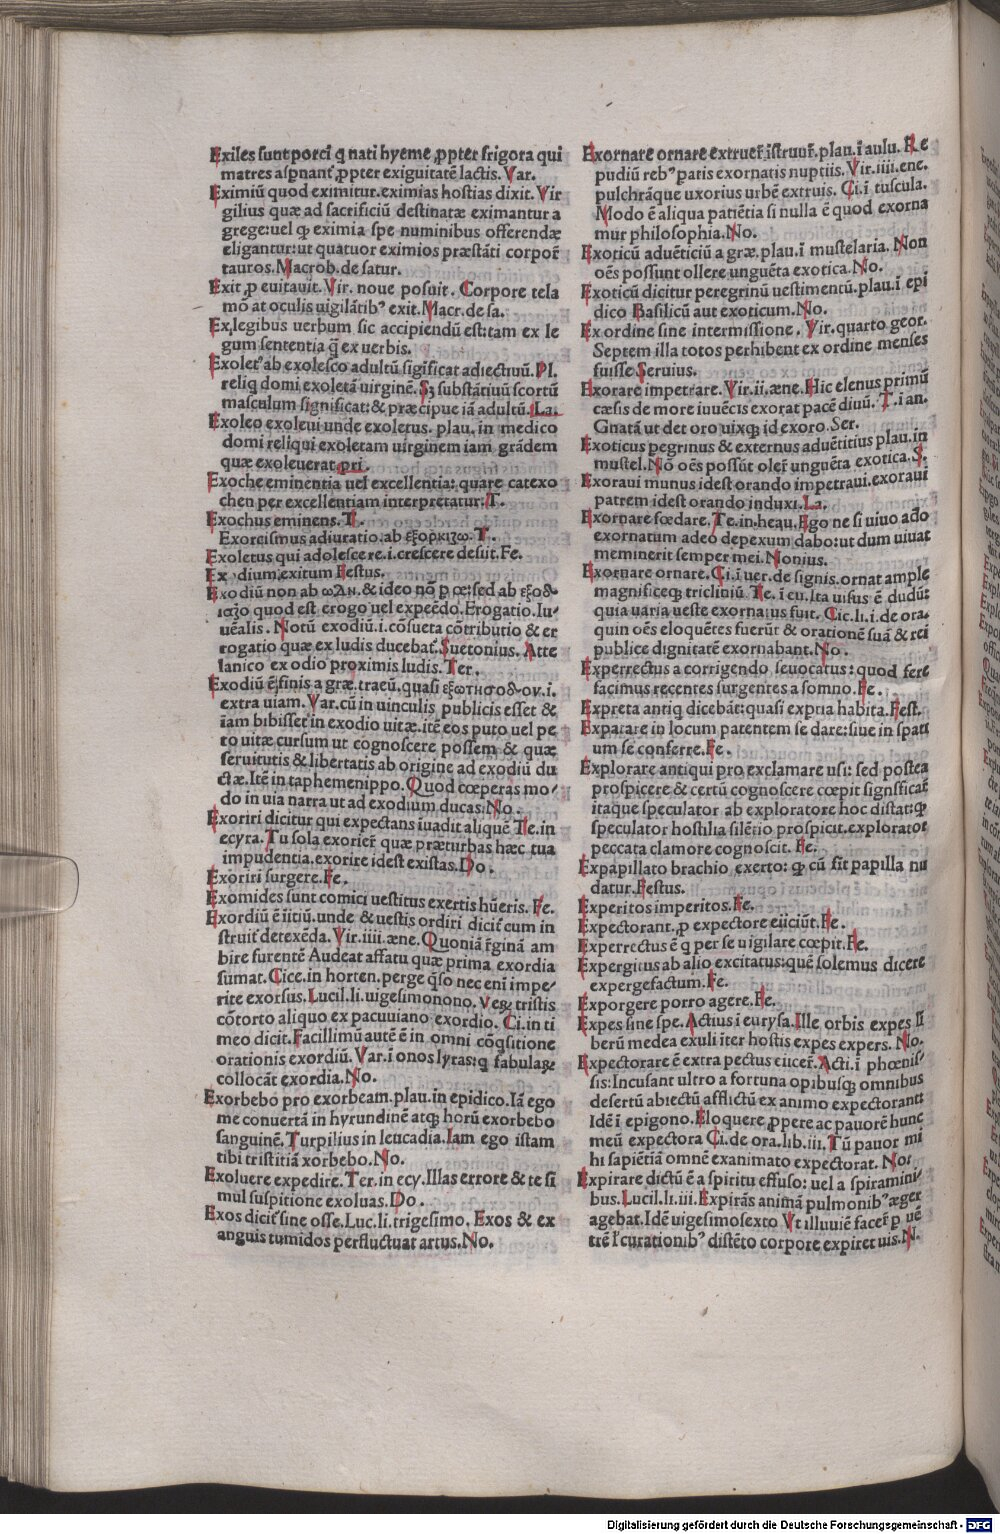 Exiles sunt porci q nati hyeme ꝓpter frigora qui
matres aspnant̃ ꝓpter exiguitatē lactis. Var.
Eximiū quod eximitur. eximias hostias dixit. Vir
gilius quæ ad sacrificiū destinatæ eximantur a
grege: uel ꝙ eximia spe numinibus offerendæ
eligantur: ut quatuor eximios præstāti corpor̃
tauros. Macrob. de satur.
Exit ꝓ euitauit. Vir. noue posuit. Corpore tela
mō at oculis uigilātibꝰ exit. Macr. de sa.
Ex, legibus uerbum sic accipiendū est: tam ex le
gum sententia q̄ ex uerbis.
Exoletꝰ ab exolesco adultū sigīficat adiectiuū. Pl.
reliq domi exoletā uirginē. Sꝫ substātiuū scortū
masculum significat: & præcipue iā adultū. La.
Exoleo exoleui unde exoletus. plau. in medico
domi reliqui exoletam uirginem iam grādem
quæ exoleuerat pri.
Exoche eminentia uel excellentia: quare catexo
chen per excellentiam interpretatur. T.
Exochus eminens. T.
Exorcismus adiuratio. ab εξορκιζω. T.
Exoletus qui adolescere. i. crescere desuit. Fe.
Ex dium exitum Festus.
Exodiū non ab ωΔΗ. & ideo nō p oe: sed ab εξοδ-
ιαζο quod est erogo uel expēdo. Erogatio. Iu-
uēalis. Notū exodiū. i. cōsueta cōtributio & er
rogatio quæ ex ludis ducebat̃. Suetonius. Atte
lanico ex odio proximis ludis. Ter.
Exodiū ē finis a græ. traeū. quasi εξωτησοδον. i.
extra uiam. Var. cū in uinculis publicis esset &
iam bibisset in exodio uitæ. itē eos puto uel pe
to uitæ cursum ut cognoscere possem & quæ
seruitutis & libertatis ab origine ad exodiū du
ctæ. Itē in taphemenippo. Quod cœperas mo-
do in uia narra ut ad exodium ducas. No.
Exoriri dicitur qui expectans iuadit aliquē Te. in
ecyra. Tu sola exorier̃ quæ præturbas hæc tua
impudentia. exorire idest existas. Do.
Exoriri surgere. Fe.
Exomides sunt comici uestitus exertis hūeris. Fe.
Exordiū ē iitiū. unde & uestis ordiri dicit̃ cum in
struit̃ detexēda. Vir. iiii. æne. Quoniā r̃ginā am
bire furentē Audeat affatu quæ prima exordia
sumat. Cice. in horten. perge q̄so nec enī impe-
rite exorsus. Lucil. li. uigesimonono. Veꝝ tristis
cōtorto aliquo ex pacuuiano exordio. Ci. in ti
meo dicit. Facillimū autē ē in omni cōq̄sitione
orationis exordiū. Var. i onos lyras: q fabulaꝝ
collocāt exordia. No.
Exorbebo pro exorbeam. plau. in epidico. Iā ego
me conuertā in hyrundinē atqꝫ horū exorbebo
sanguinē. Turpilius in leucadia. Iam ego istam
tibi tristitiā xorbebo. No.
Exoluere expedire. Ter. in ecy. Illas errore & te sī
mul suspitione exoluas. Do.
Exos dicit̃ sine osse. Luc. li. trigesimo. Exos & ex
anguis tumidos perfluctuat artus. No.
Exornare ornare extruer̃. īstruer̃. plau. ī aulu. Re
pudiū rebꝰ paratis exornatis nuptiis. Vir. iiii. ene.
pulchrāque uxorius urbē extruis. Ci. ī tuscula.
Modo ē aliqua patiētia si nulla ē quod exorna
mur philosophia. No.
Exoticū aduēticiū a græ. plau. ī mustelaria. Non
oēs possunt ollere unguēta exotica. No.
Exoticū dicitur peregrinū uestimentū. plau. ī epi
dico Basilicū aut exoticum. No.
Ex ordine sine intermissione. Vir. quarto geor.
Septem illa totos perhibent ex ordine menses
fuisse Seruius.
Exorare impetrare. Vir. ii. æne. Hic elenus primū
cæsis de more iuuēcis exorat pacē diuū. T. i an.
Gnatā ut det oro uixqꝫ id exoro. Ser.
Exoticus pegrinus & externus aduētitius plau. in
mustel. Nō oēs possūt oler̃ unguēta exotica. S.
Exoraui munus idest orando impetraui. exoraui
patrem idest orando induxi. La.
Exornare fœdare. Te. in. heau. Ego ne si uiuo ado
exornatum adeo depexum dabo: ut dum uiuat
meminerit semper mei. Nonius.
Exornare ornare. Ci. ī uer. de signis. ornat ample
magnificeqꝫ tricliniū. Te. ī eu. Ita uisus ē dudū:
quia uaria ueste exornatus fuit. Cic. li. i. de ora.
quin oēs eloquētes fuerūt & orationē suā & rei
publice dignitatē exornabant. No.
Experrectus a corrigendo seuocatus: quod fere
facimus recentes surgentes a somno. Fe.
Expreta antiq dicebāt: quasi exptia habita. Fest.
Exparare in locum patentem se dare: siue in spati
um se conferre. Fe.
Explorare antiqui pro exclamare usi: sed postea
prospicere & certū cognoscere cœpit signsficar̃
itaque speculator ab exploratore hoc distat: ꝙ
speculator hostilia silētio prospicit. explorator
peccata clamore cognoscit. Fe.
Expapillato brachio exerto: ꝙ cū fit papilla nu
datur. Festus.
Experitos imperitos. Fe.
Expectorant. ꝓ expectore eiiciūt. Fe.
Experrectus ē q per se uigilare cœpit. Fe.
Expergitus ab alio excitatus: quē solemus dicere
expergefactum. Fe.
Exporgere porro agere. Fe.
Expes sine spe. Actius i eurysa. Ille orbis expes li
berū medea exuli iter hostis expes expers. No.
Expectorare ē extra pectus eiicer̃. Acti. ī phœnis-
sis: Incusant ultro a fortuna opibusqꝫ omnibus
desertū abiectū afflictū ex animo expectorantt
Idē ī epigono. Eloquere ꝓpere ac pauorē hunc
meū expectora Ci. de ora. lib. iii. Tū pauor mi
hi sapiētiā omnē exanimato expectorat. No.
Expirare dictū ē a spiritu effuso: uel a spiramini-
bus. Lucil. lı. iii. Expirās animā pulmonibꝰ æger
agebat. Idē uigesimosexto Vt illuuiē facer̃ p uē
trē l̃ curationibꝰ distēto corpore expiret uis. N.
Digitalisierung gefördert durch die Deutsche Forschungsgemeinschaft - DFG